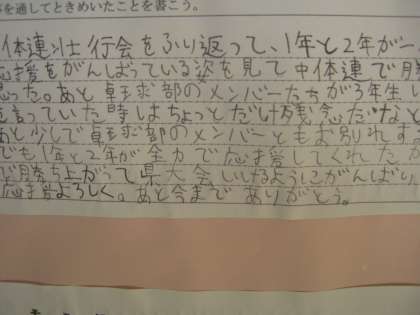 を通してときめいたことを書こう。
体連壮行会をふり返って、1年と2年が一
応援をがんばっている姿を見て中体連で勝
思った。あと卓球部のメンバーたちが3年生い
を言っていた時はちょっとだけ残念だなと
あと少しで卓球部のメンバーともお別れす
でも1年と2年が全力で応援してくれたか
で勝ち上がって県大会いけるようにがんばり
応援よろしく。あと今までありがとう。